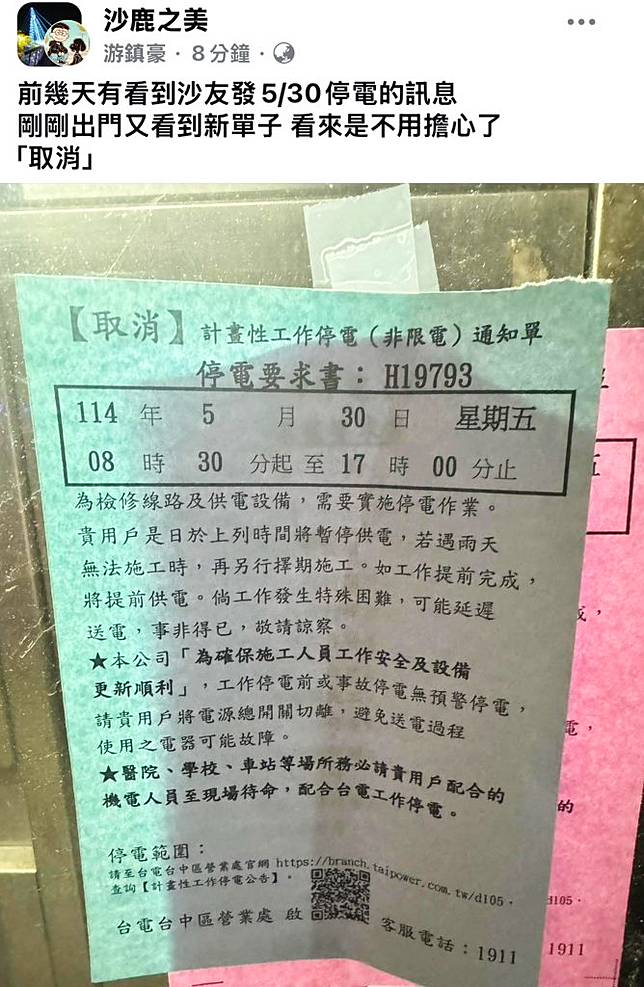 沙鹿之美
游鎮豪 · 8分鐘 ·
前幾天有看到沙友發5/30停電的訊息
剛剛出門又看到新單子 看來是不用擔心了
「取消」
【取消】計畫性工作停電(非限電)通知單
停電要求書:H19793
114 年 5 月 30 日 星期五
08 時 30 分起至 17 時 00 分止
為檢修線路及供電設備,需要實施停電作業。
貴用戶是日於上列時間將暫停供電,若遇雨天
無法施工時,再另行擇期施工。如工作提前完成,
將提前供電。倘工作發生特殊困難,可能延遲
送電,事非得已,敬請諒察。
★本公司「為確保施工人員工作安全及設備
更新順利」,工作停電前或事故停電無預警停電,
請貴用戶將電源總開關切離,避免送電過程
使用之電器可能故障。
★醫院、學校、車站等場所務必請貴用戶配合的
機電人員至現場待命,配合台電工作停電。
停電範圍:
請至台電台中區營業處官網 https://branch.taipower.com.tw/d105.
查詢【計畫性工作停電公告】。
台電台中區營業處 啟
客服電話:1911
電,
的
d105.
1911